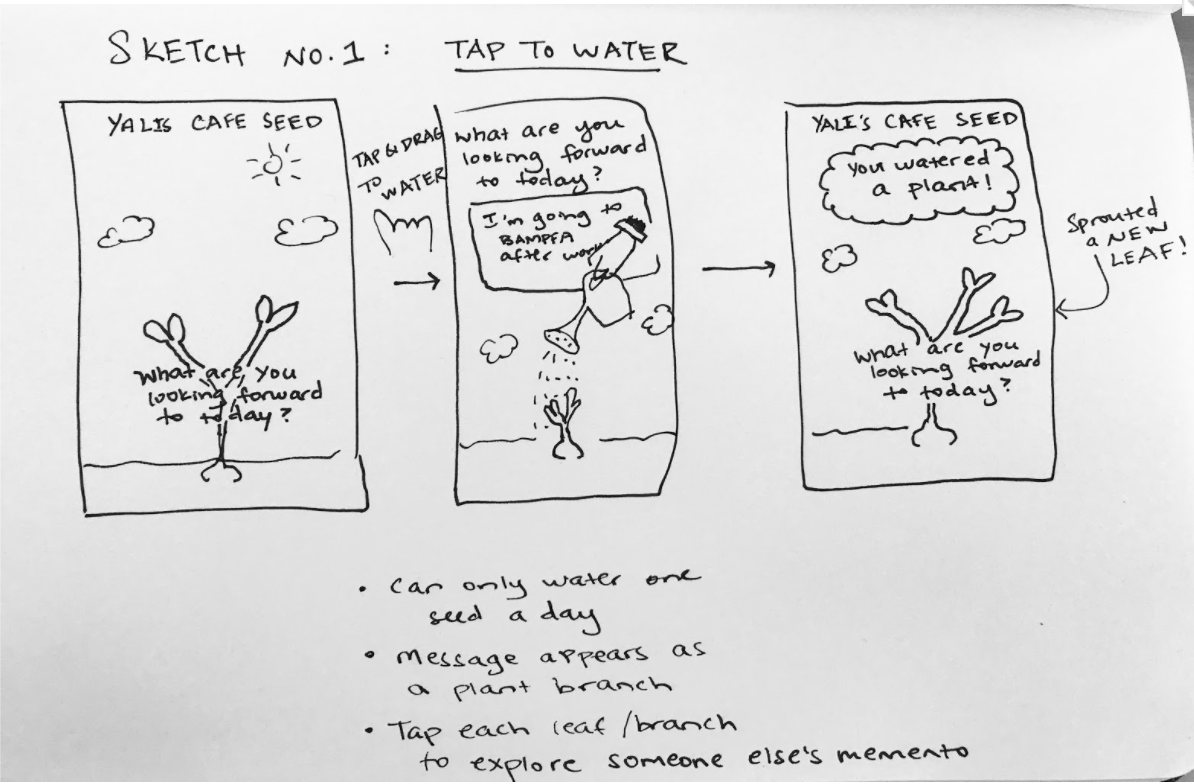 SKETCH NO.1: TAP TO WATER
YALIS CAFE SEED
What are you
looking forward
to today?
TAP & DRAG
TO WATER
What are you
looking forward
to today?
I'm going to
BAMPFA
after work
YALI'S CAFE SEED
You watered
a plant!
What are you
looking forward
to today?
Sprouted
a NEW
LEAF!
• Can only water one
seed a day
• Message appears as
a plant branch
• Tap each leaf/branch
to explore someone else's memento